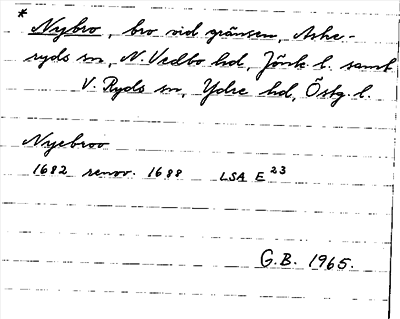 * Nybro, bro vid gränsen, Aske-
ryds sn, N. Vedbo hd, Jönk. l. samt
V. Ryds sn, Ydre hd, Östg. l.
Nyebroo
1682 renov. 1688 LSA E 23
G.B. 1965.